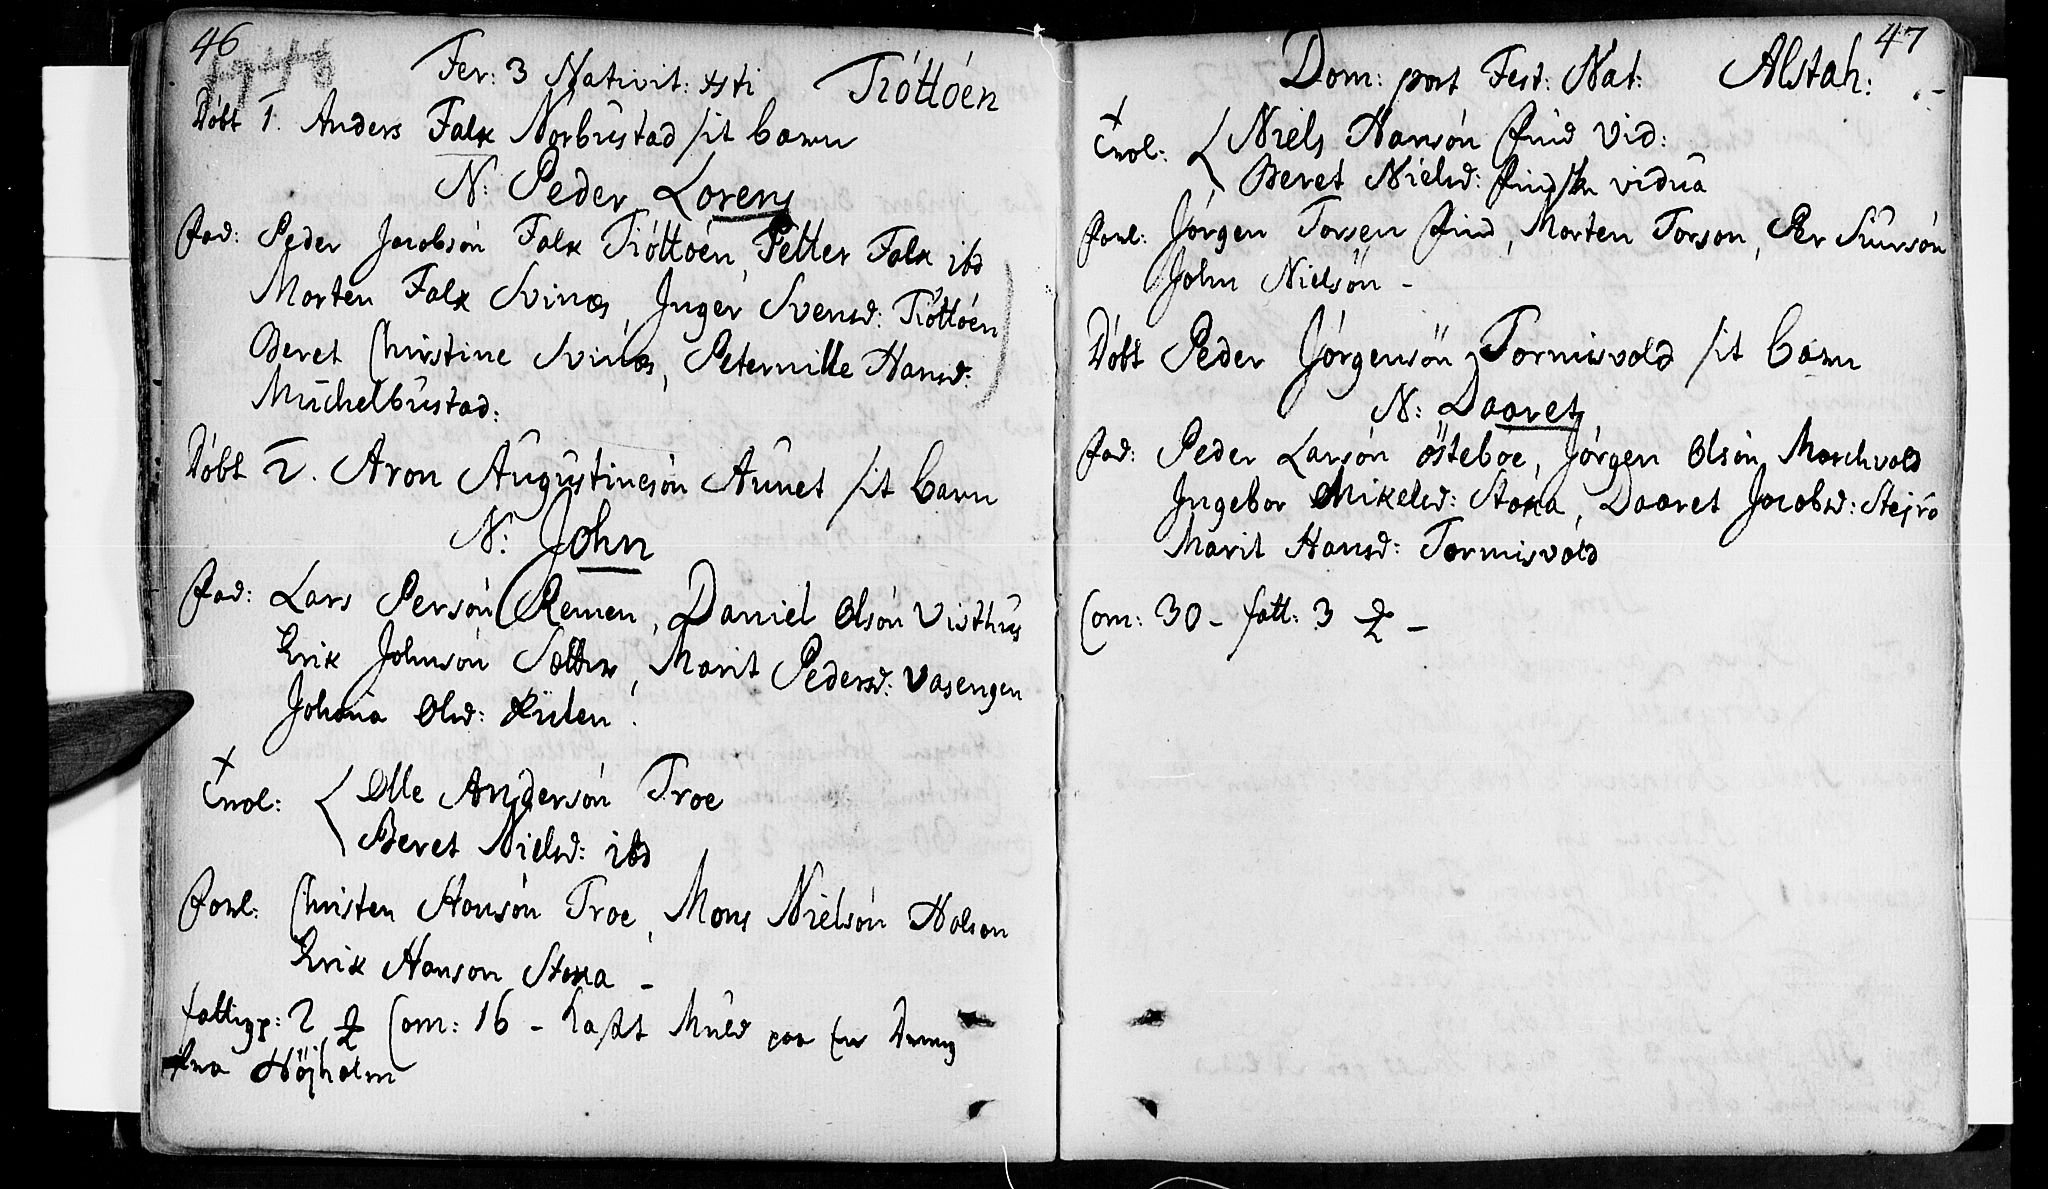 46
Fer: 3 Nativit: xsti Tróttóen
Dóbt 1. Anders Falk Norbustad sit barn
N: Peder Lorens
Fad: Peder Jacobsón Falk Tróttóen, Petter Falk ibd
Morten Falk Svinæs, Inger Svensd: Tróttóen
Beret Christine Svinæs, Peternille Hansd:
Michelbustad:
Dóbt 2. Aron Augustinesón Aunet sit barn
N: John
Fad: Lars Persón Remen, Daniel Olsón Visthus
Erik Johnsón Sætter, Marit Pedersd: Vasengen
Johana Olsd: Kulen.
Trol: Olle Andersón Troe
Beret Nielsd: ibd
Forl: Christen Hansón Troe, Mons Nielsón Holson
Erik Hanson Stoka -
fattigp: 2 Com: 16 - kast Muld paa en Dreng
fra Höjholm
47
Dom: post Fest: Nat: Alstah:
Trol: Niels Hansón Find Vid:
Beret Nielsd: Findsk vidua
Forl: Jórgen Torsen Find, Morten Torson, Per Siursón
John Nielsön -
Dóbt Peder Jórgensön Tormisvold sit barn
N: Daaret
Fad: Peder Larsón östeboe, Jórgen Olsón Marchvold
Ingebor Mikelsd: Stoka, Daaret Jacobsd: Stejrö
Marit Hansd: Tormisvold
Com: 30 - fatt: 3 -